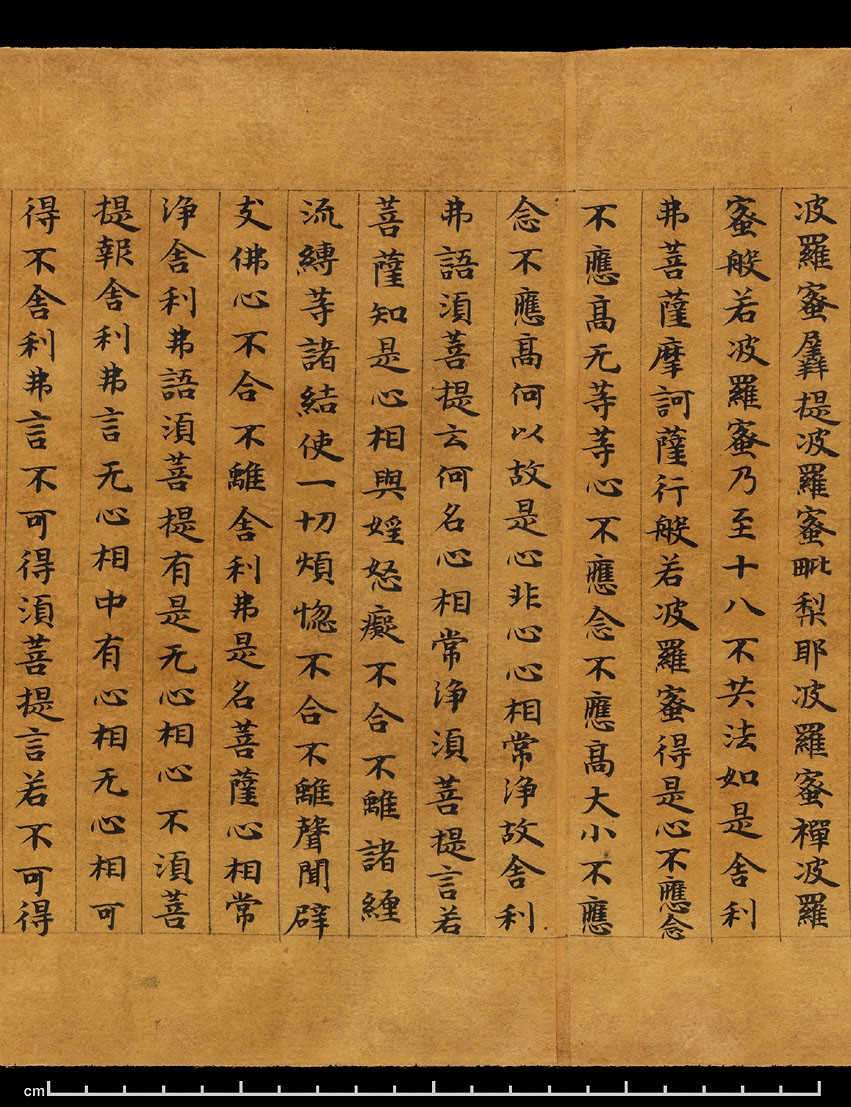 波羅蜜羼提波羅蜜毗梨耶波羅蜜禪波羅
蜜般若波羅蜜乃至十八不共法如是舍利
弗菩薩摩訶薩行般若波羅蜜得是心不應念
不應高无等等心不應念不應高大小不應
念不應高何以故是心非心心相常浄故舍利
弗語須菩提云何名心相常浄須菩提言若
菩薩知是心相與婬怒癡不合不離諸纏
流縛等諸結使一切煩惱不合不離聲聞辟
支佛心不合不離舍利弗是名菩薩心相常
浄舍利弗語須菩提有是无心相心不須菩
提報舍利弗言无心相中有心相无心相可
得不舍利弗言不可得須菩提言若不可得
cm